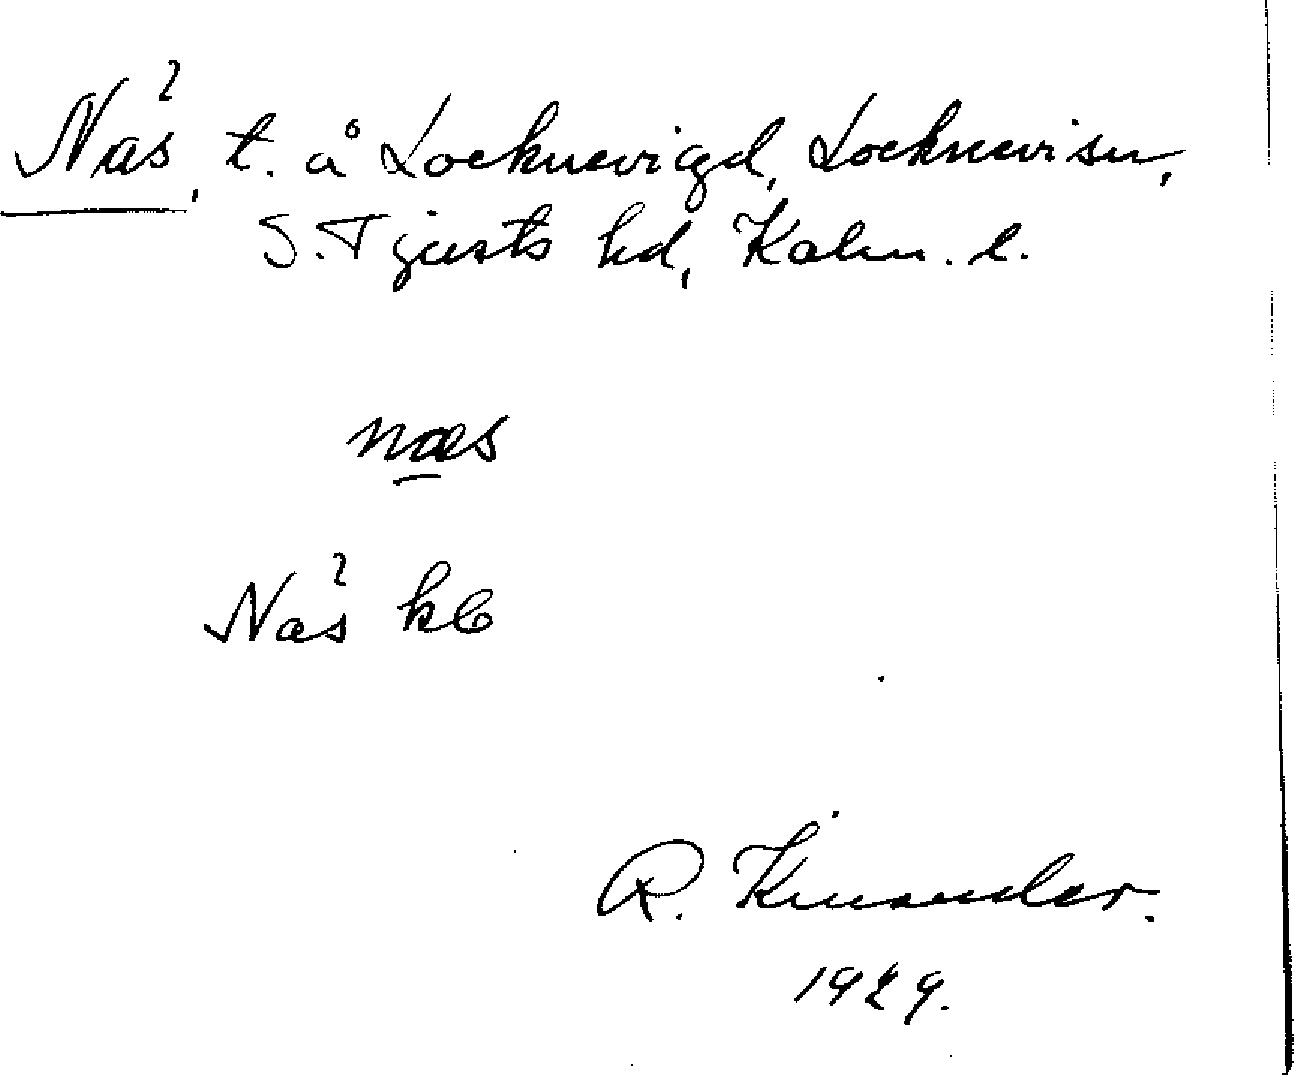 Näs, t. å Locknevigd, Locknevi sn,
S. Tjusts hd, Kalm. l.
næs
Näs kb
R. Kinander.
1929.